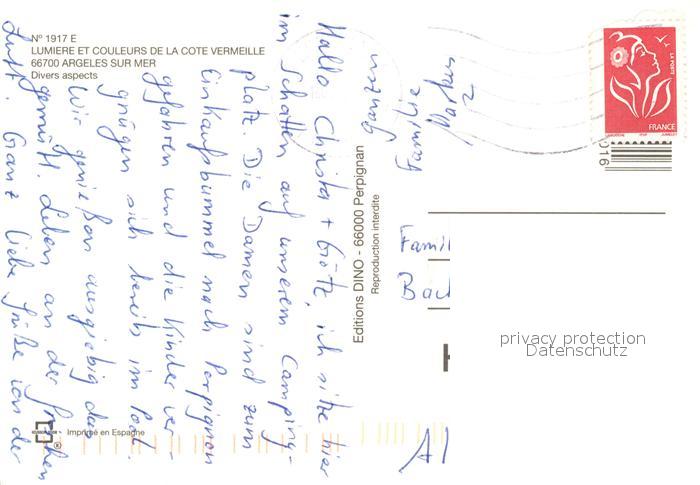 Nº 1917 E
LUMIERE ET COULEURS DE LA COTE VERMEILLE
66700 ARGELES SUR MER
Divers aspects
Hallo Christa + Götz, ich sitze hier
im Schatten auf unserem Camping-
platz. Die Damen sind zum
Einkaufsbummel nach Perpignon
gefahren und die Kinder ver-
gnügen sich bereits im Pool.
Wir genießen ausgiebig das
Leben an der frischen
Luft. Ganz liebe Grüße von der
ganzen
Familie
Editions DINO - 66000 Perpignan
Reproduction interdite
Imprimé en Espagne
®
LA POSTE
FRANCE
016
Famil
Bac
A
privacy protection
Datenschutz